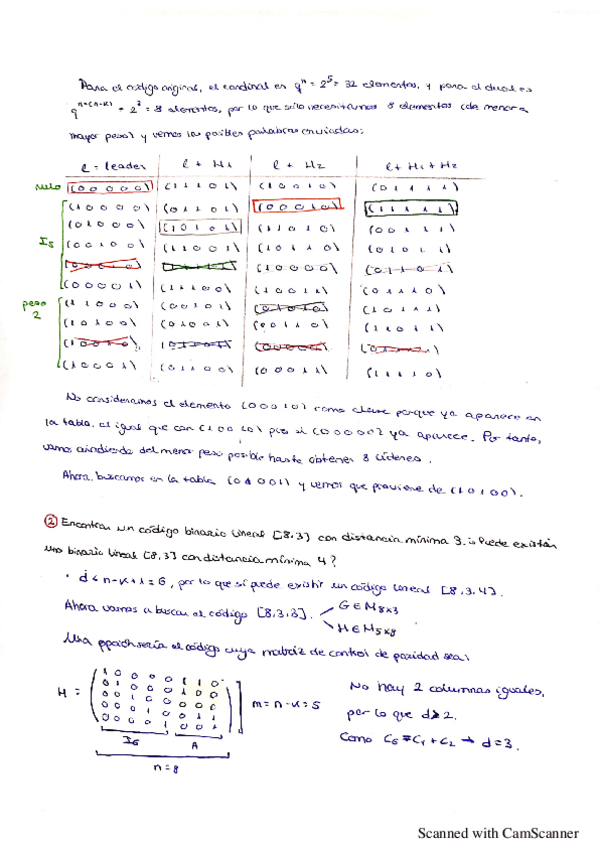 Para el código original, el cardinal es q^n = 2^5 = 32 elementos, y para el dual es
q^n-(n-k) = 2^3 = 8 elementos, por lo que sólo necesitamos 8 elementos (de menor a
mayor peso) y vemos las posibles palabras enviadas:
l = leader l + H1 l + H2 l + H1 + H2
nulo (0 0 0 0 0) (1 1 1 0 1) (1 0 0 1 0) (0 1 1 1 1)
(1 0 0 0 0) (0 1 1 0 1) (0 0 0 1 0) (1 1 1 1 1)
(0 1 0 0 0) (1 0 1 0 1) (1 1 0 1 0) (0 0 1 1 1)
I5 (0 0 1 0 0) (1 1 0 0 1) (1 0 1 1 0) (0 1 0 1 1)
(1 0 0 0 0) (0 1 1 0 1)
(0 0 0 0 1) (1 1 1 0 0) (1 0 0 1 1) (0 1 1 1 0)
peso 2 (1 1 0 0 0) (0 0 1 0 1) (0 1 0 1 0) (1 0 1 1 1)
(1 0 1 0 0) (0 1 0 0 1) (0 0 1 1 0) (1 1 0 1 1)
(1 0 0 0 1) (0 1 1 0 0) (0 0 0 1 1) (1 1 1 1 0)
No consideramos el elemento (0 0 0 1 0) como porque ya aparece en
la tabla, al igual que con (1 0 0 1 0) pues si (0 0 0 0 0) ya aparece. Por tanto,
vamos añadiendo del menor peso posible hasta obtener 8 líderes.
Ahora, buscamos en la tabla (0 1 0 0 1) y vemos que proviene de (1 0 1 0 0).
② Encontrar un código binario lineal [8,3] con distancia mínima 3. ¿Puede existir
uno binario lineal [8,3] con distancia mínima 4?
· d ≤ n-k+1 = 6, por lo que sí puede existir un código lineal [8,3,4].
Ahora vamos a buscar el código [8,3,3]. G ∈ M8x3
H ∈ M5x8
Una sería el código cuya matriz de control de paridad sea:
H = 1 0 0 0 0 1 1 0
0 1 0 0 0 1 0 0
0 0 1 0 0 0 0 0
m = n-k = 5
I5 A
n = 8
No hay 2 columnas iguales,
por lo que d > 2.
Como C6 = C1 + C2 → d = 3.
Scanned with CamScanner